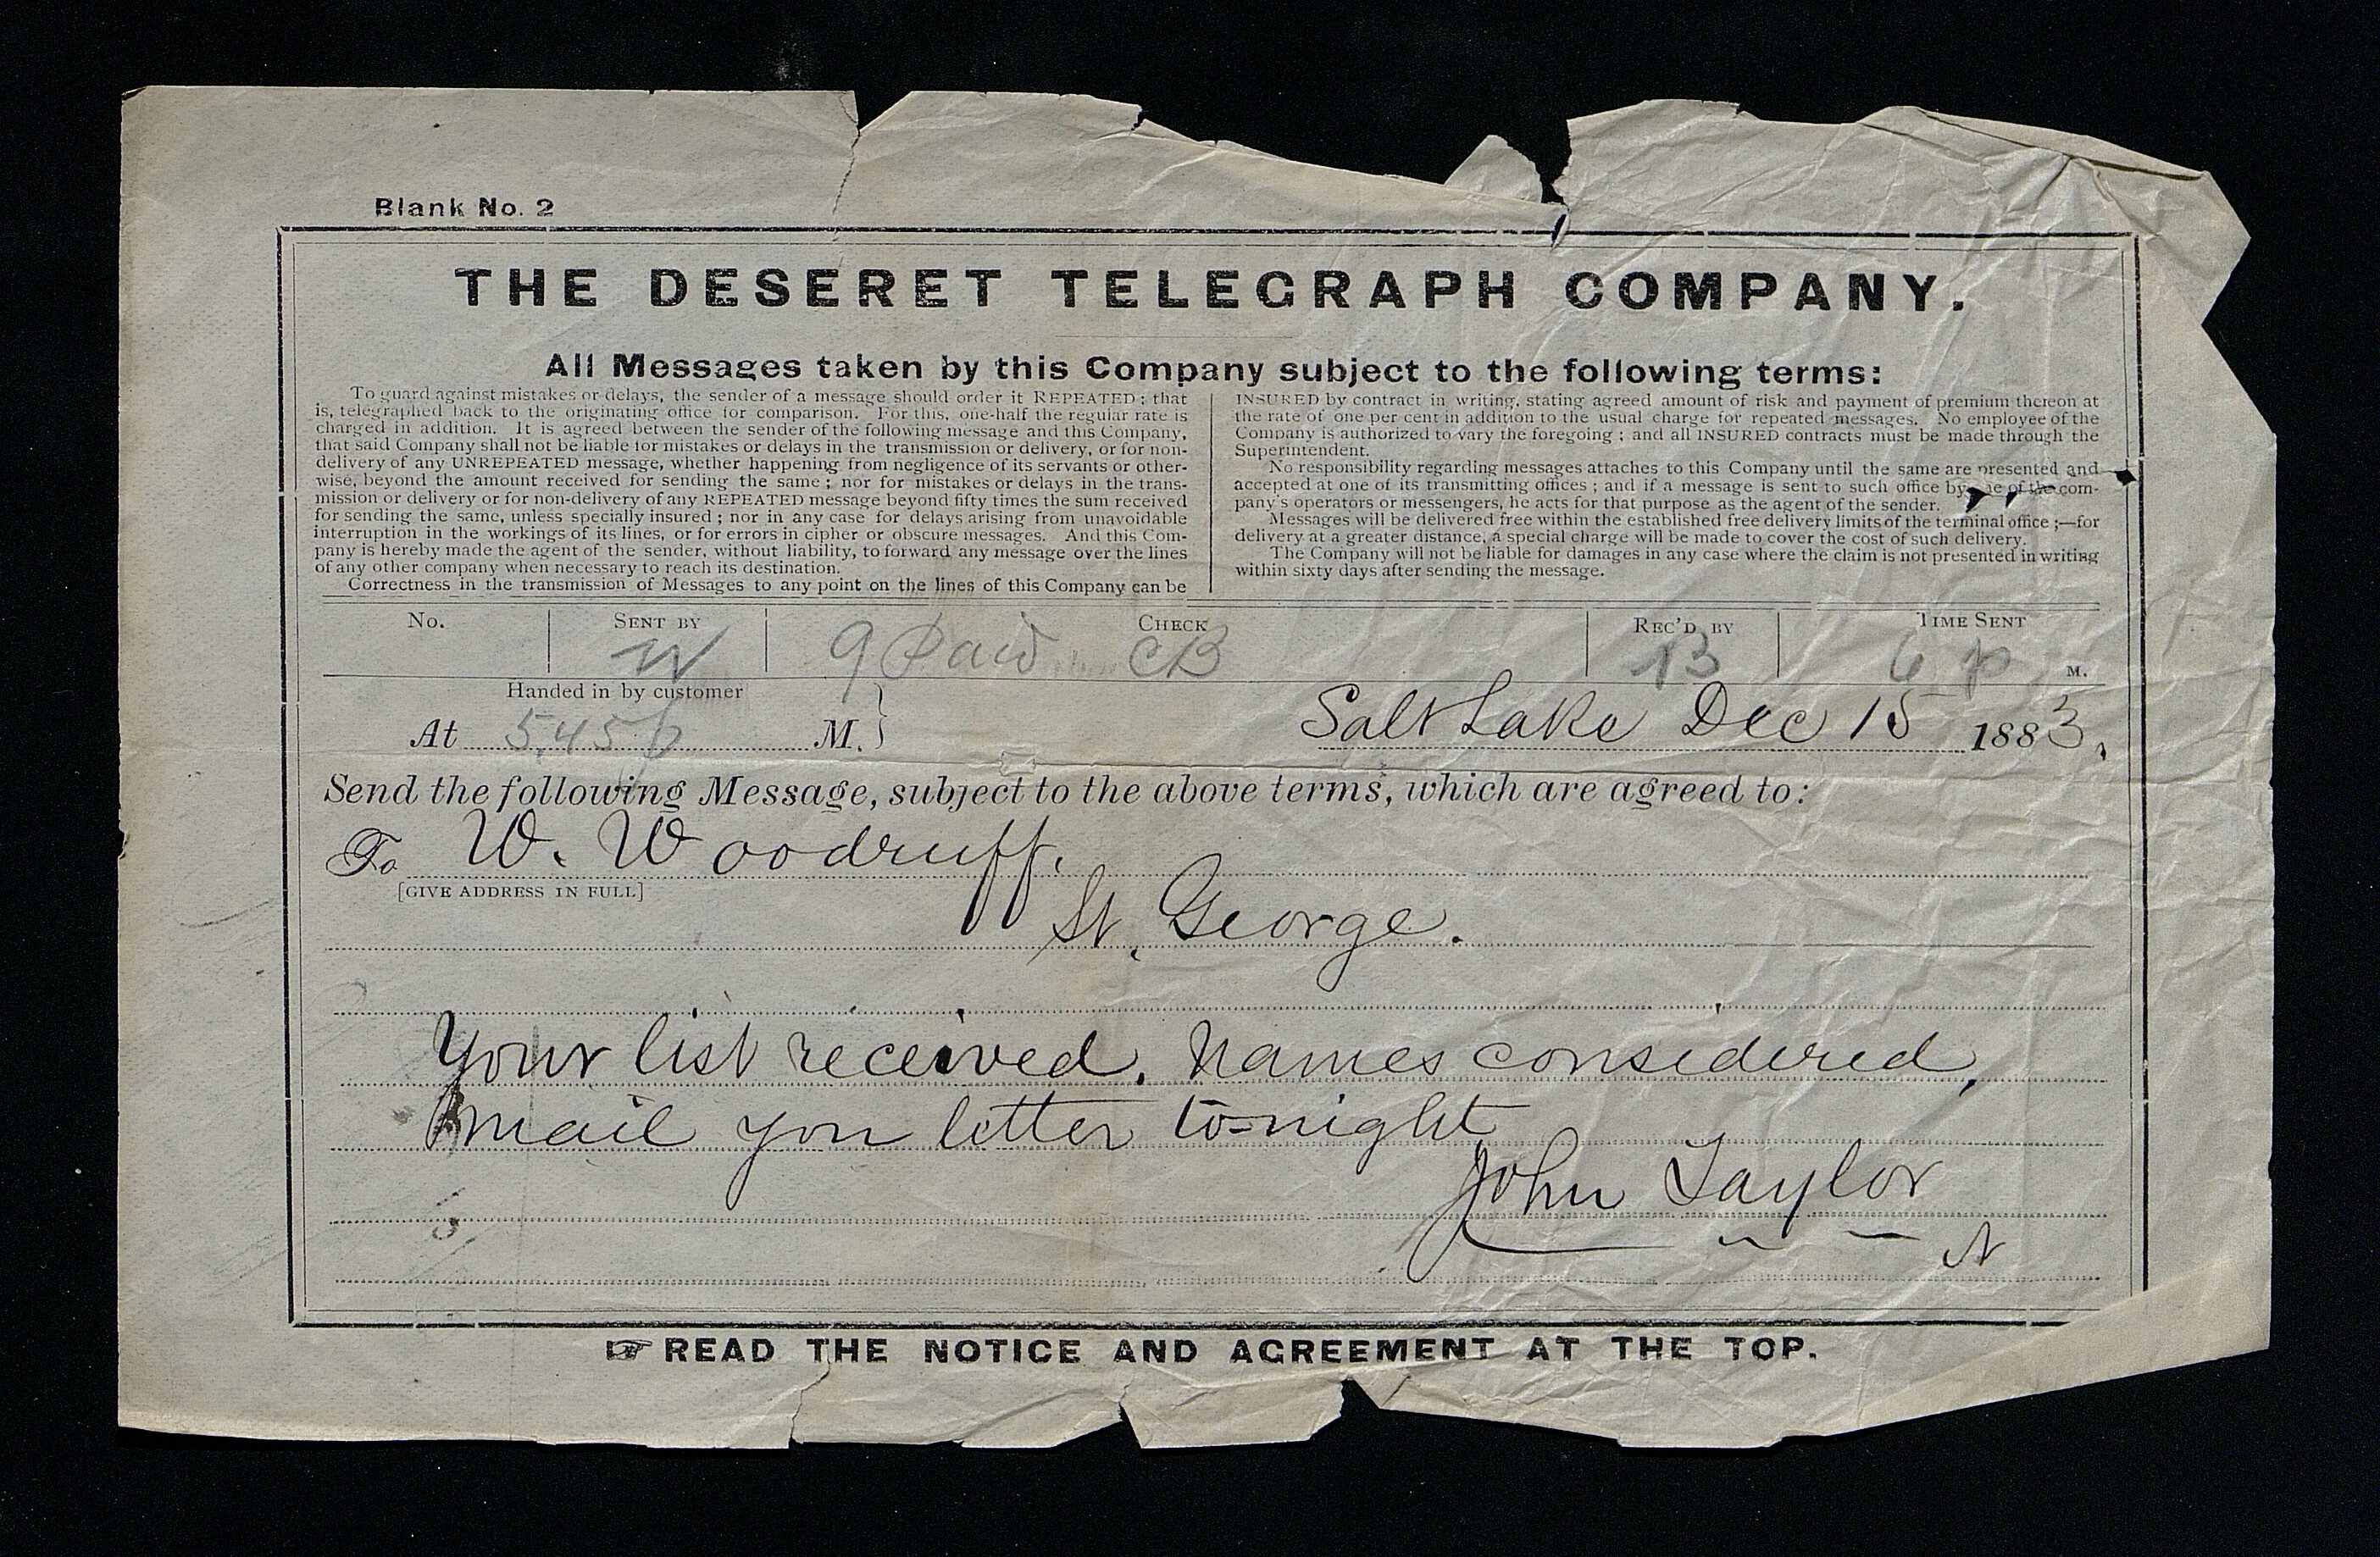 Blank No. 2
THE DESERET TELEGRAPH COMPANY.
All Messages taken by this Company subject to the following terms:
To guard against mistakes or delays, the sender of a message should order it REPEATED; that
is, telegraphed back to the originating office for comparison. For this, one-half the regular rate is
charged in addition. It is agreed between the sender of the following message and this Company,
that said Company shall not be liable for mistakes or delays in the transmission or delivery, or for non-
delivery of any UNREPEATED message, whether happening from negligence of its servants or other-
wise, beyond the amount received for sending the same; nor for mistakes or delays in the trans-
mission or delivery or for non-delivery of any REPEATED message beyond fifty times the sum received
for sending the same, unless specially insured; nor in any case for delays arising from unavoidable
interruption in the workings of its lines, or for errors in cipher or obscure messages. And this Com-
pany is hereby made the agent of the sender, without liability, to forward any message over the lines
of any other company when necessary to reach its destination.
Correctness in the transmission of Messages to any point on the lines of this Company can be
INSURED by contract in writing, stating agreed amount of risk and payment of premium thereon at
the rate of one per cent in addition to the usual charge for repeated messages. No employee of the
Company is authorized to vary the foregoing; and all INSURED contracts must be made through the
Superintendent.
No responsibility regarding messages attaches to this Company until the same are presented and
accepted at one of its transmitting offices; and if a message is sent to such office by one of the com-
pany's operators or messengers, he acts for that purpose as the agent of the sender.
Messages will be delivered free within the established free delivery limits of the terminal office;—for
delivery at a greater distance, a special charge will be made to cover the cost of such delivery.
The Company will not be liable for damages in any case where the claim is not presented in writing
within sixty days after sending the message.
No. SENT BY CHECK REC'D BY TIME SENT
W 9 Paid CB 13 6 p M.
Handed in by customer
At 5,45 p M. Salt Lake Dec 15 1883,
Send the following Message, subject to the above terms, which are agreed to:
To W. Woodruff.
[GIVE ADDRESS IN FULL]
St. George.
Your list received. Names considered,
mail you letter to-night
John Taylor
READ THE NOTICE AND AGREEMENT AT THE TOP.